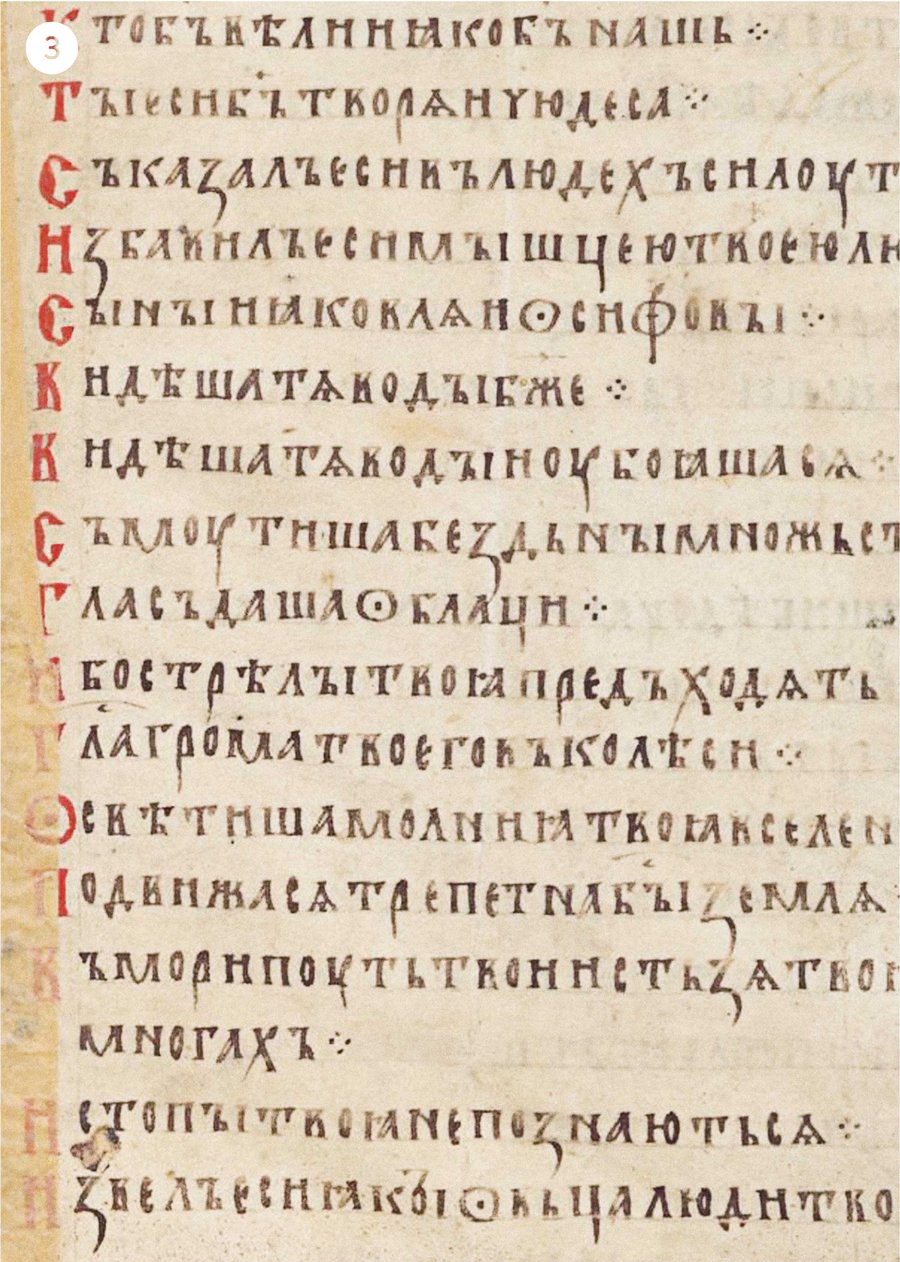 3
Кто бъ вѣлии ꙗко бъ нашь ⁘
Тъі еси бъ творѧи чюдеса ⁘
Съказалъ еси въ людехъ силоу т
Избавилъ еси мъішцею твоею лю
Сынъі иꙗковлѧ и ꙩсифовъі ⁘
Видѣша тѧ водъі бже ⁘
Видѣша тѧ водъі и оубоꙗша сѧ ⁘
Съмоутиша бездьнъі множьст
Гласъ даша ꙩблаци ⁘
Ибо стрѣлъі твоꙗ предъходѧть
Гла грома твоего въ колѣси ⁘
Ꙩсвѣтиша молниꙗ твоꙗ вселен
Подвижа сѧ трепетна бъі землѧ
Въ мори поуть твои и стьзѧ тво
многахъ ⁘
И стопъі твоꙗ не познають сѧ ⁘
Извелъ еси ꙗко ꙩвьца люди тво